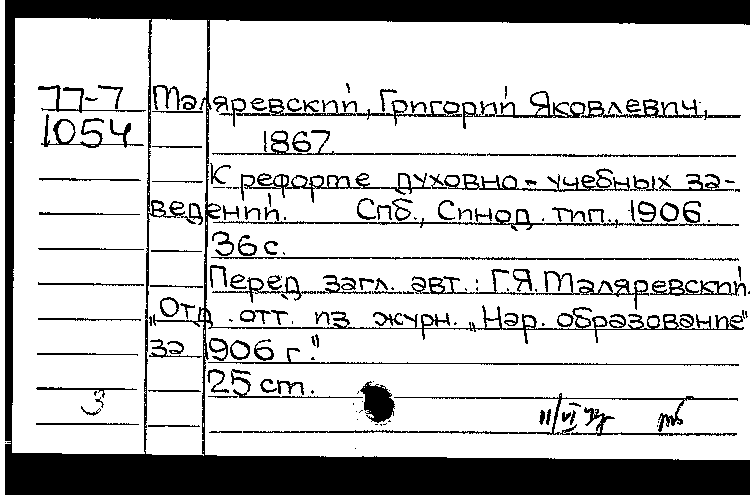 77-7 Маляревский, Григорий Яковлевич,
1054 1867.
К реформе духовно-учебных за-
ведений. Спб., Синод. тип., 1906.
36 с.
Перед загл. авт.: Г.Я. Маляревский.
„Отд. отт. из журн. „Нар. образование"
за 1906 г."
25 ст.
11/VI